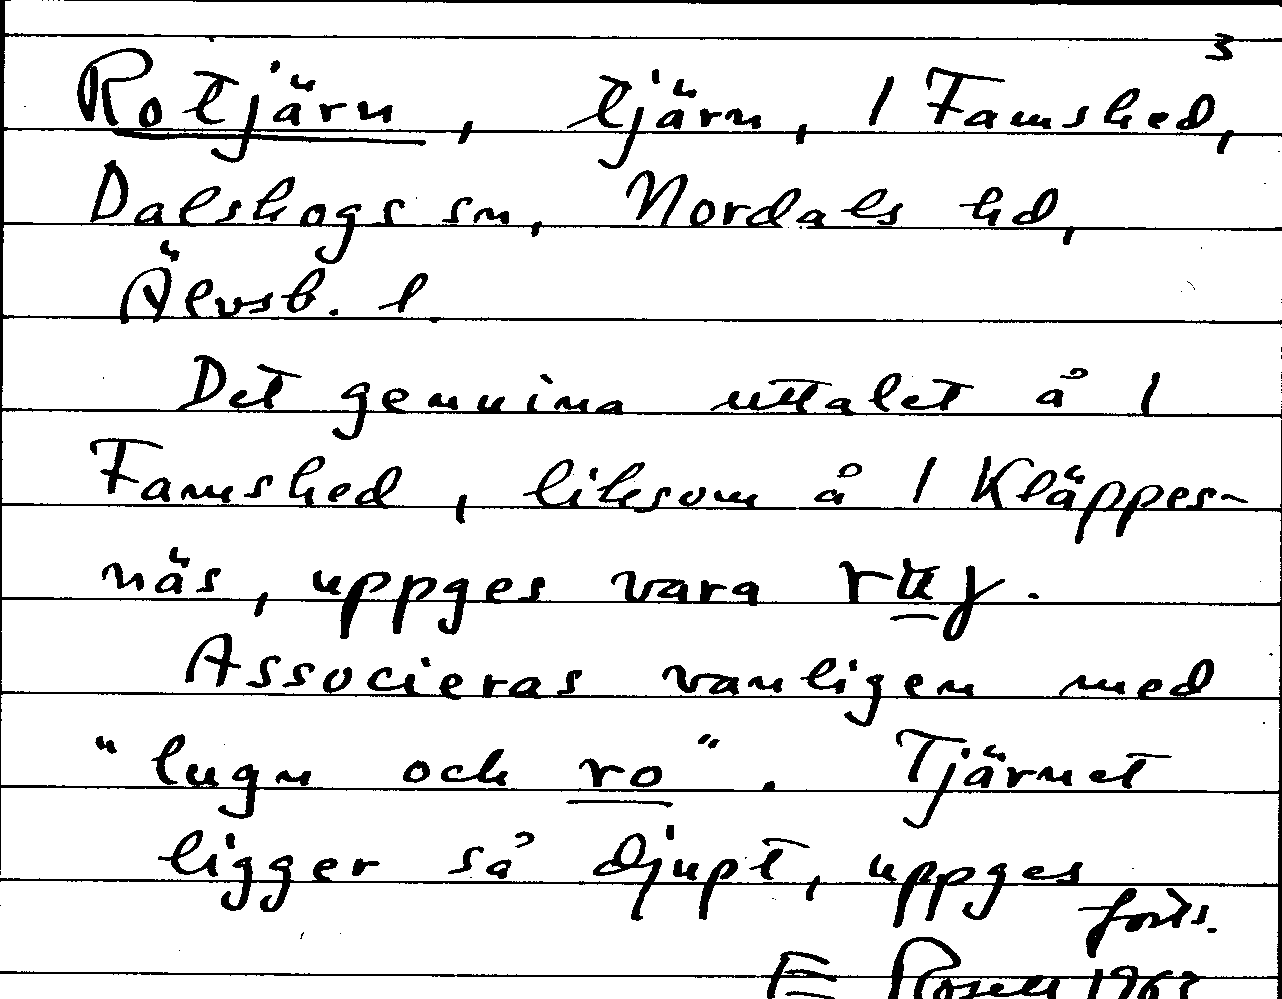 3
Rotjärn, tjärn, 1 Famshed,
Dalskogs sn, Nordals hd,
Älvsb. l.
Det genuina uttalet å 1
Famshed, liksom å 1 Kläppes-
näs, uppges vara
Associeras vanligen med
"lugn och ro". Tjärnet
ligger så djupt, uppges
forts.
E Rosell